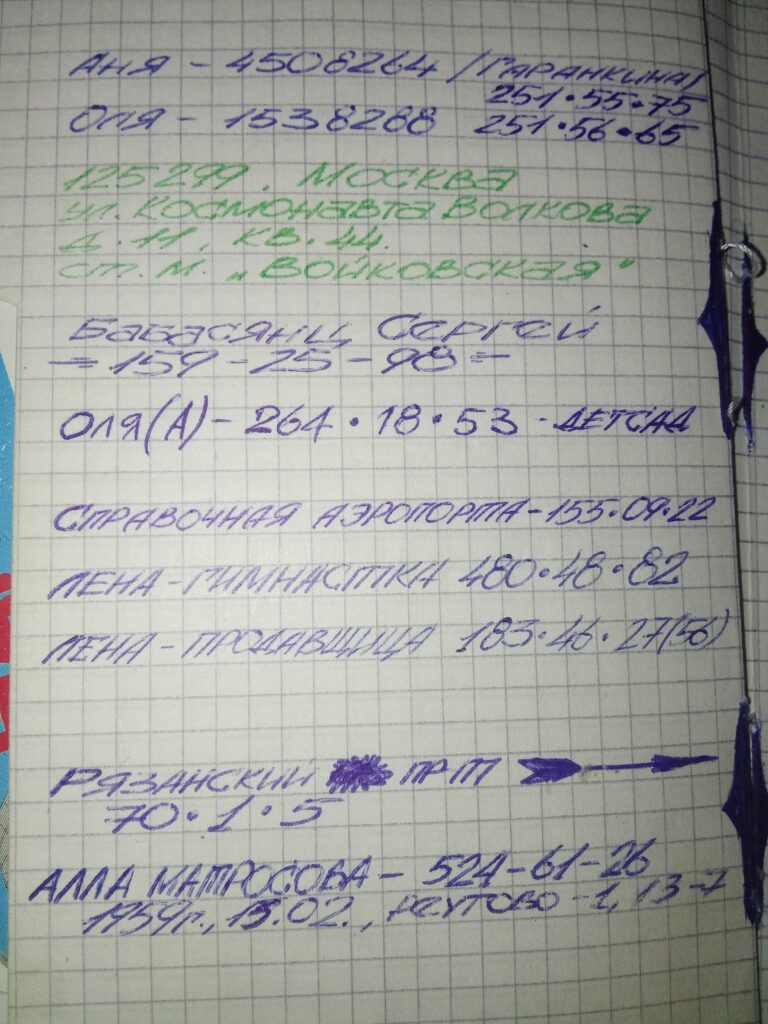 Аня - 4508264 /Гаранкина/
251·55·75
Оля - 1538288 251·56·65
125299. Москва
ул. Космонавта Волкова
д. 11, кв. 44.
ст. м. „Войковская"
Бабасянц Сергей
= 159 - 25 - 98 =
Оля(А) - 264·18·53 - детсад
Справочная аэропорта - 155·09·22
Лена - гимнастка 480·48·82
Лена - продавщица 183·46·27(56)
Рязанский пр-т
70·1·5
Алла Матросова - 524-61-26
1959г., 15.02., Реутово-1, 13-7